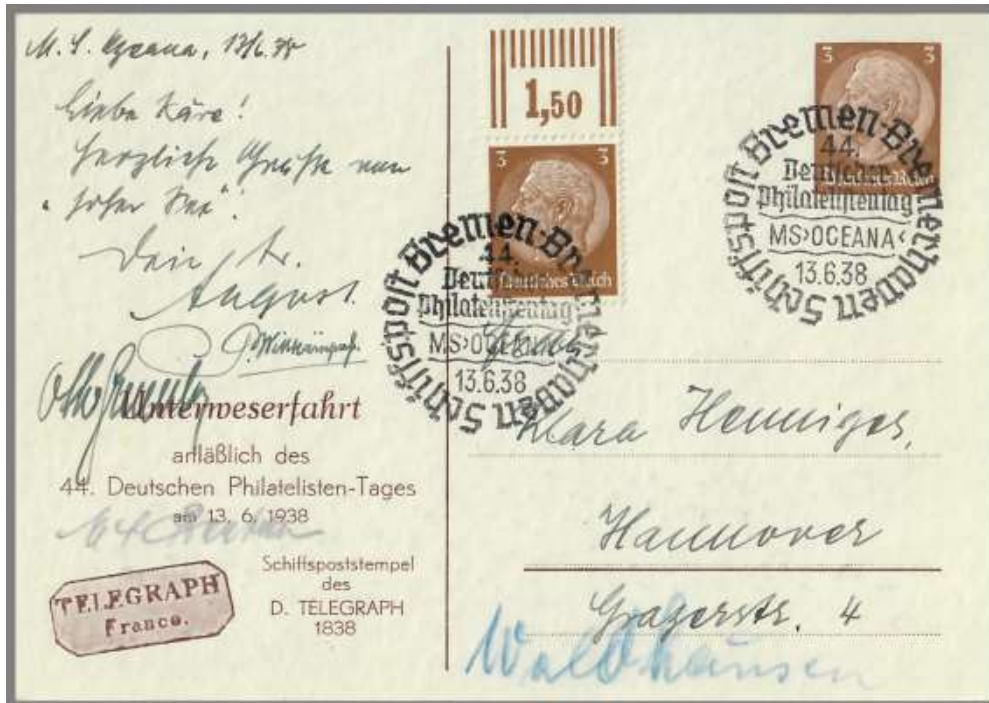 M. S. Oceana, 13/6. 38
Liebe Käre!
Herzliche Grüße von
"hoher See".
Dein tr.
August.
Unterweserfahrt
anläßlich des
44. Deutschen Philatelisten-Tages
am 13. 6. 1938
TELEGRAPH
Franco.
Schiffspoststempel
des
D. TELEGRAPH
1838
1,50
3 3
Deutsches Reich
Schiffspost Bremen-Bremerhaven
44.
Deutscher
Philatelistentag
MS>OCEANA<
13.6.38
3 3
Deutsches Reich
Schiffspost Bremen-Bremerhaven
44.
Deutscher
Philatelistentag
MS>OCEANA<
13.6.38
Klara Henniges,
Hannover
Grazerstr. 4
Waldhausen